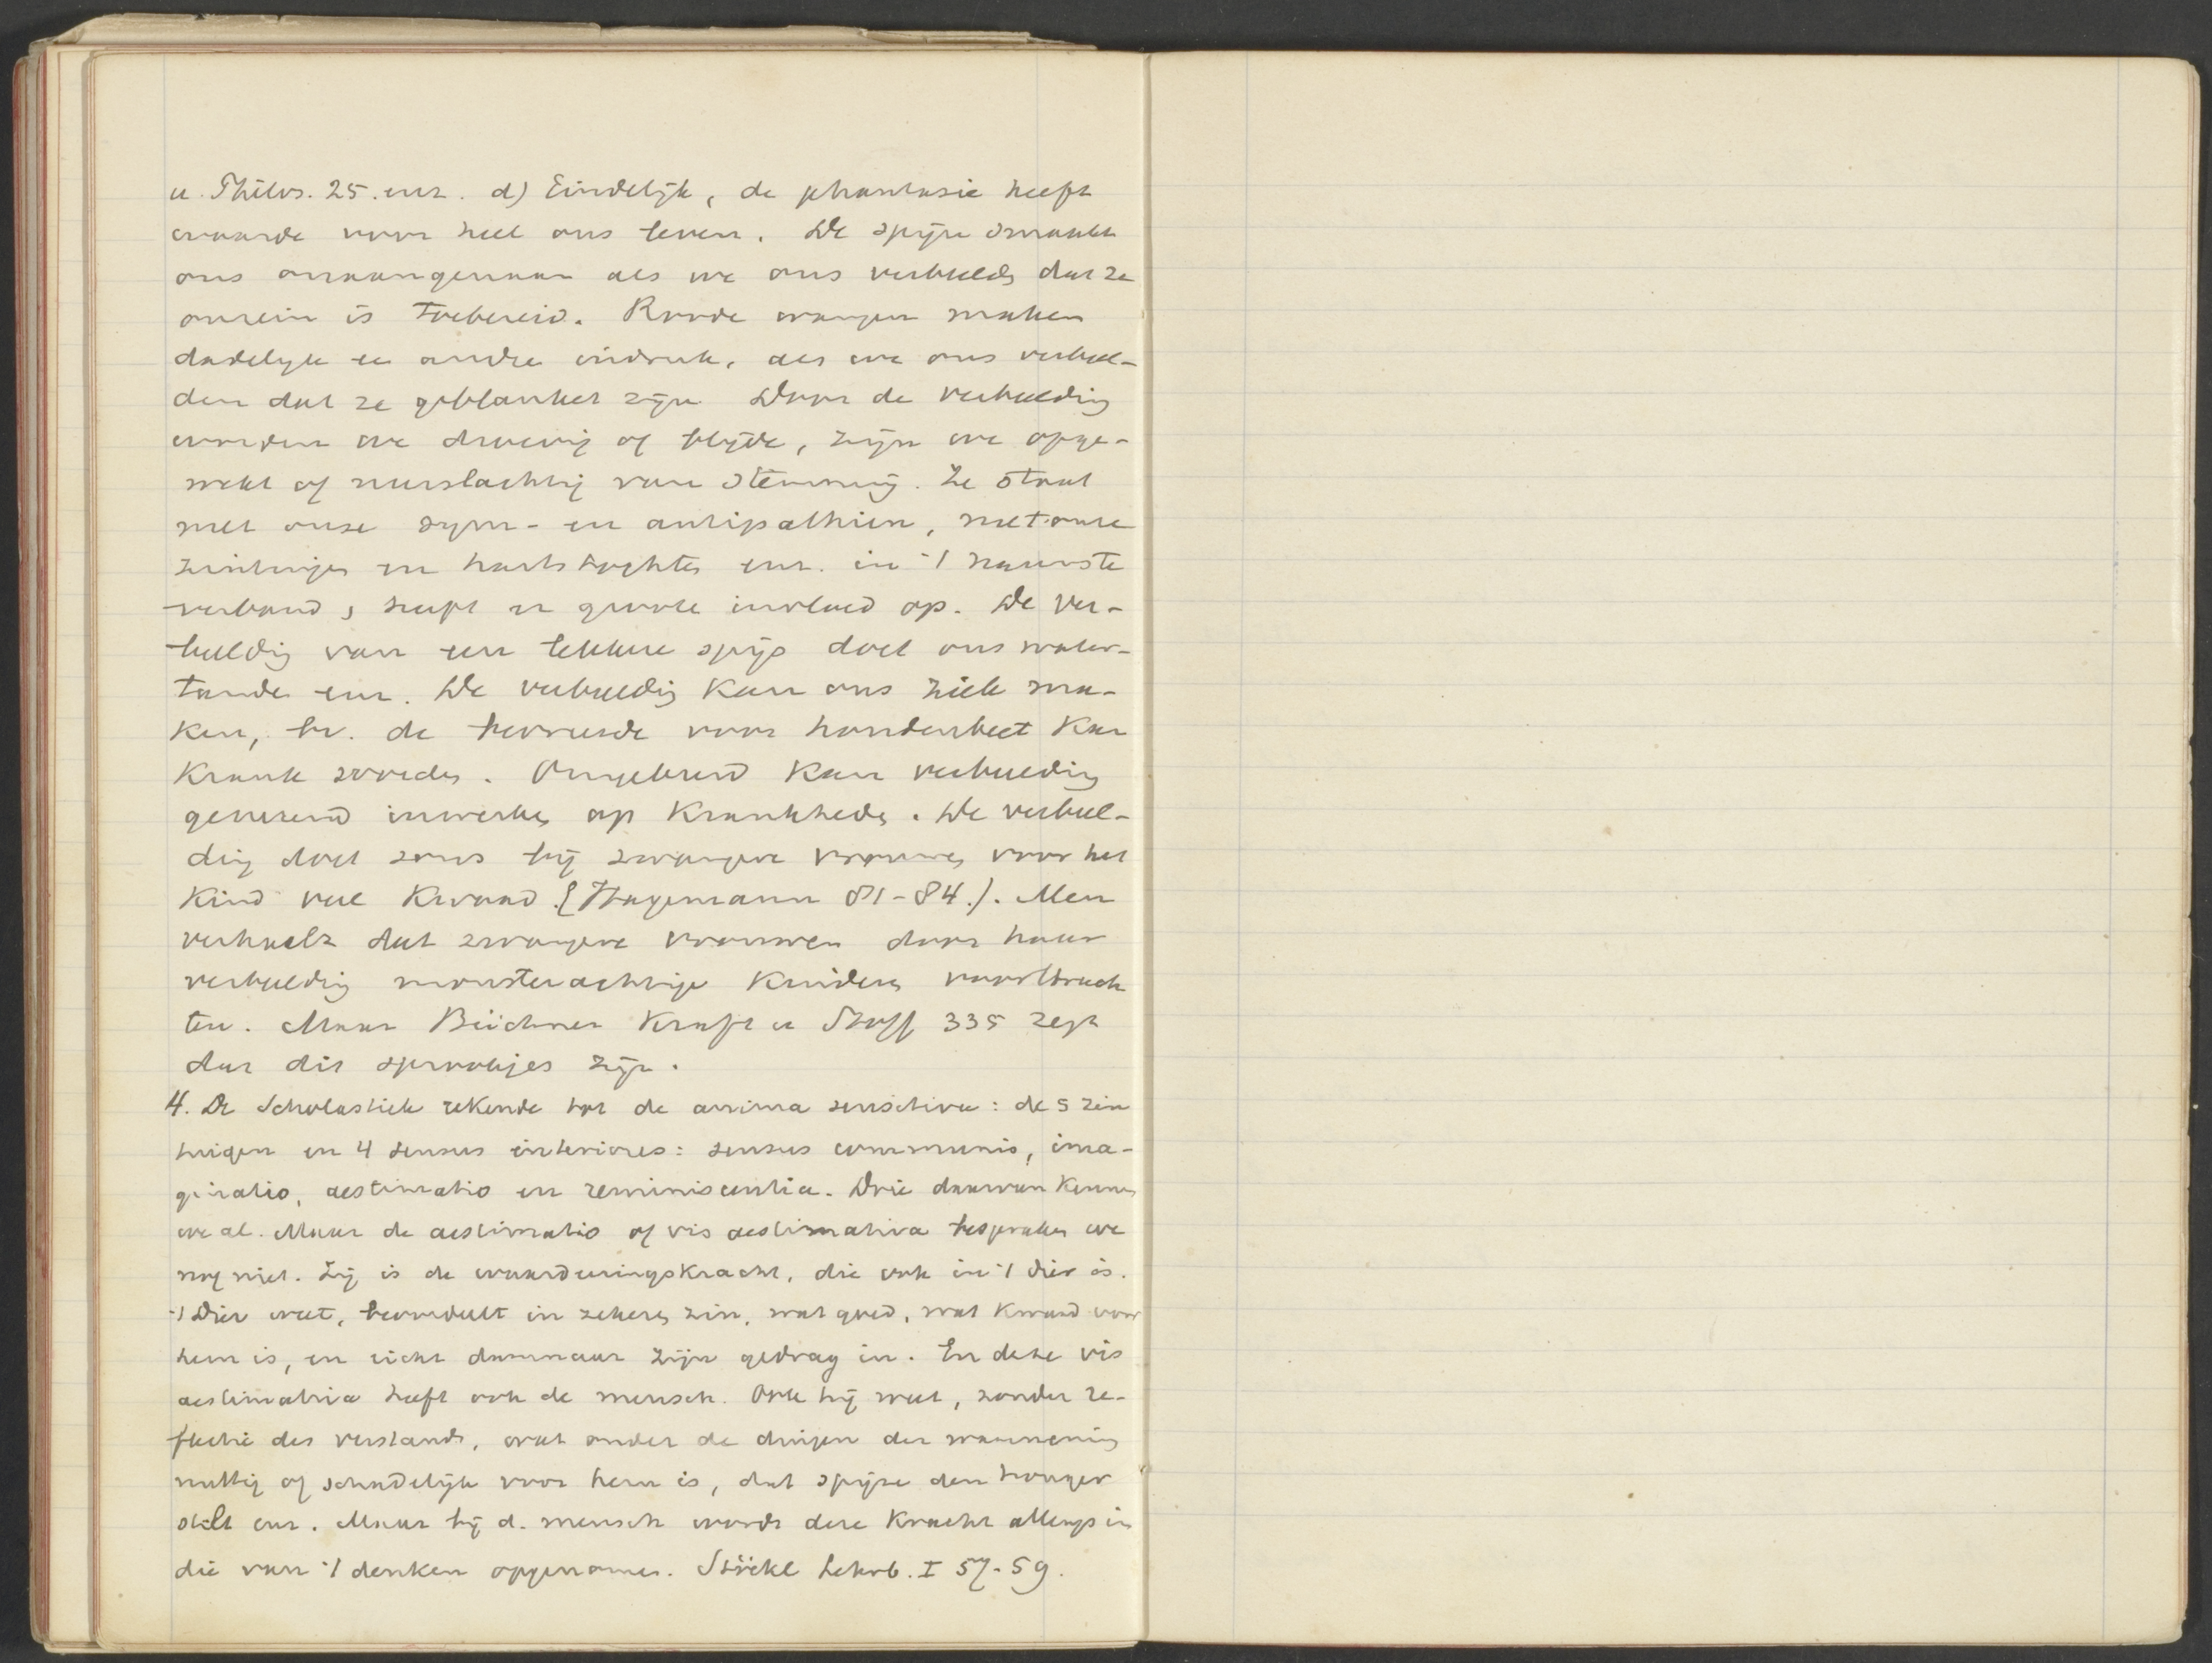 u. Philos. 25. enz. d) Eindelijk, de phantasie heeft
waarde voor heel ons leven. De spijze smaakt
ons onaangenaam als we ons verbeelden dat ze
onrein is toebereid. Roode wangen maken
dadelijk een andre indruk, als we ons verbeel-
den dat ze geblanket zijn. Door de verbeelding
worden we droevig of blijde, zijn we opge-
wekt of neerslachtig van stemming. Ze staat
met onze sym- en antipathiën, met onze
zinlijke en hartstochten enz. in 't nauwste
verband, heeft er groote invloed op. De ver-
beeldig van een lekkere spijs doet ons water-
tanden enz. De verbeeldig kan ons ziek ma-
ken, bv. de bevreesde voor hondenbeet kan
krank worden. Omgekeerd kan verbeelding
genezend inwerken op krankheden. De verbeel-
dig doet soms bij zwangere vrouwen voor het
kind veel kwaad. (Hagemann 81-84.). Men
verhaalt dat zwangere vrouwen door haar
verbeeldig monsterachtige kinderen voortbrach
ten. Maar Büchner Kraft u Stoff 335 zegt
dat dit sprookjes zijn.
4. De Scholastiek rekende tot de anima sensitiva: de 5 zin
tuigen en 4 sensus interiores: sensus communis, ima-
ginatio, aestimatio en reminiscentia. Drie daarvan kennen
we al. Maar de aestimatio of vis aestimativa bespraken we
nog niet. Zij is de waardeeringskracht, die ook in 't dier is.
't Dier weet, beoordeelt in zekeren zin, wat goed, wat kwaad voor
hem is, en richt daarnaar zijn gedrag in. En deze vis
aestimativa heeft ook de mensch. Ook hij weet, zonder re-
flectie des verstands, wat onder de dingen der waarneming
nuttig of schadelijk voor hem is, dat spijze den honger
stilt enz. Maar bij d. mensch wordt deze kracht allengs in
die van 't denken opgenomen. Stöckl Lehrb. I 57-59.